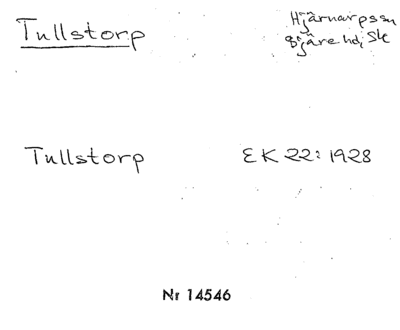 Tullstorp
Hjärnarpssn
Bjäre hd, Sk
Tullstorp EK 22: 1928
Nr 14546